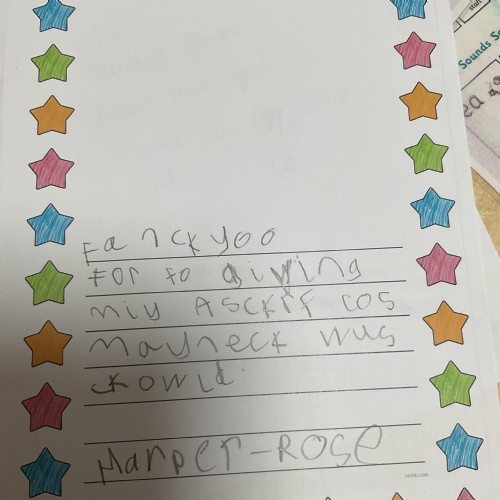 Fanckyoo
For to giving
miy ASCKrF cos
mayneck wus
ckowld.
Harper-Rose
twinkl.com
Sounds
ea